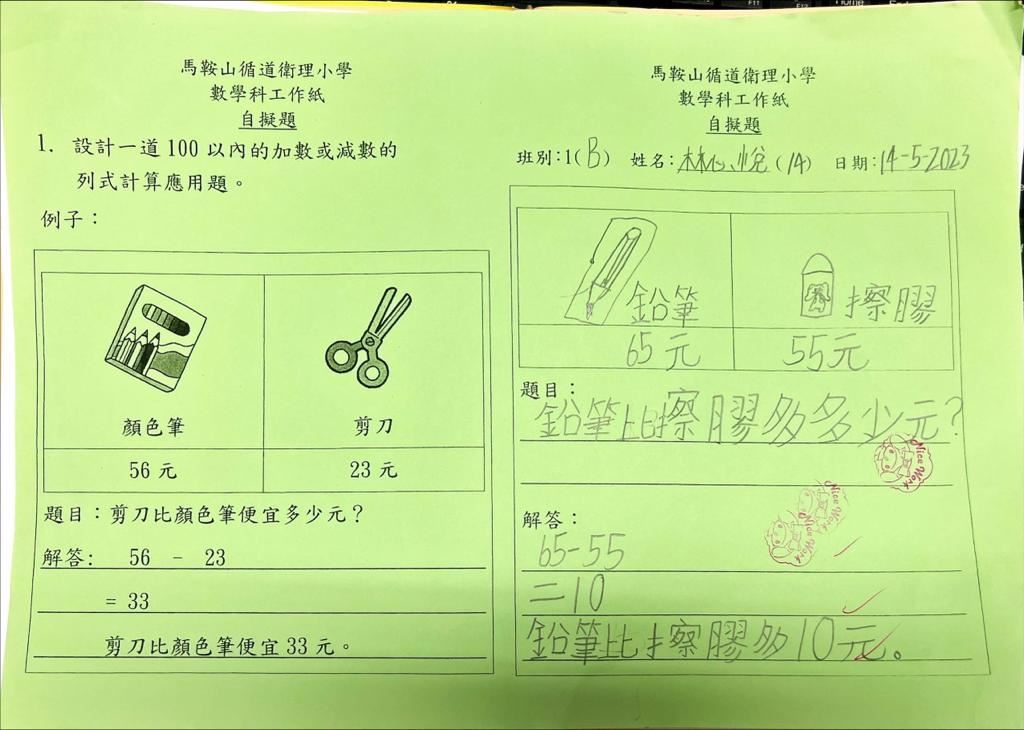 馬鞍山循道衛理小學
數學科工作紙
自擬題
1. 設計一道100以內的加數或減數的
列式計算應用題。
例子：
顏色筆
剪刀
56 元
23 元
題目：剪刀比顏色筆便宜多少元？
解答: 56 - 23
= 33
剪刀比顏色筆便宜 33 元。
馬鞍山循道衛理小學
數學科工作紙
自擬題
班別:1(B) 姓名:林心悅(14) 日期:14-5-2023
鉛筆
擦膠
65元
55元
題目：
鉛筆比擦膠多多少元?
Nice Work
解答：
Nice Work
Nice Work
65-55
=10
鉛筆比擦膠多10元。